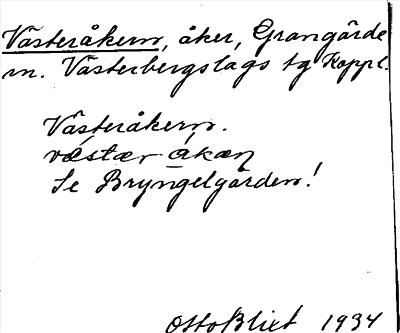 Västeråkern, åker, Grangärde
sn. Västerbergslags tg Koppl.
Västeråkern.
væstær åkæɳ
Se Bryngelgården!
Otto Blixt 1934